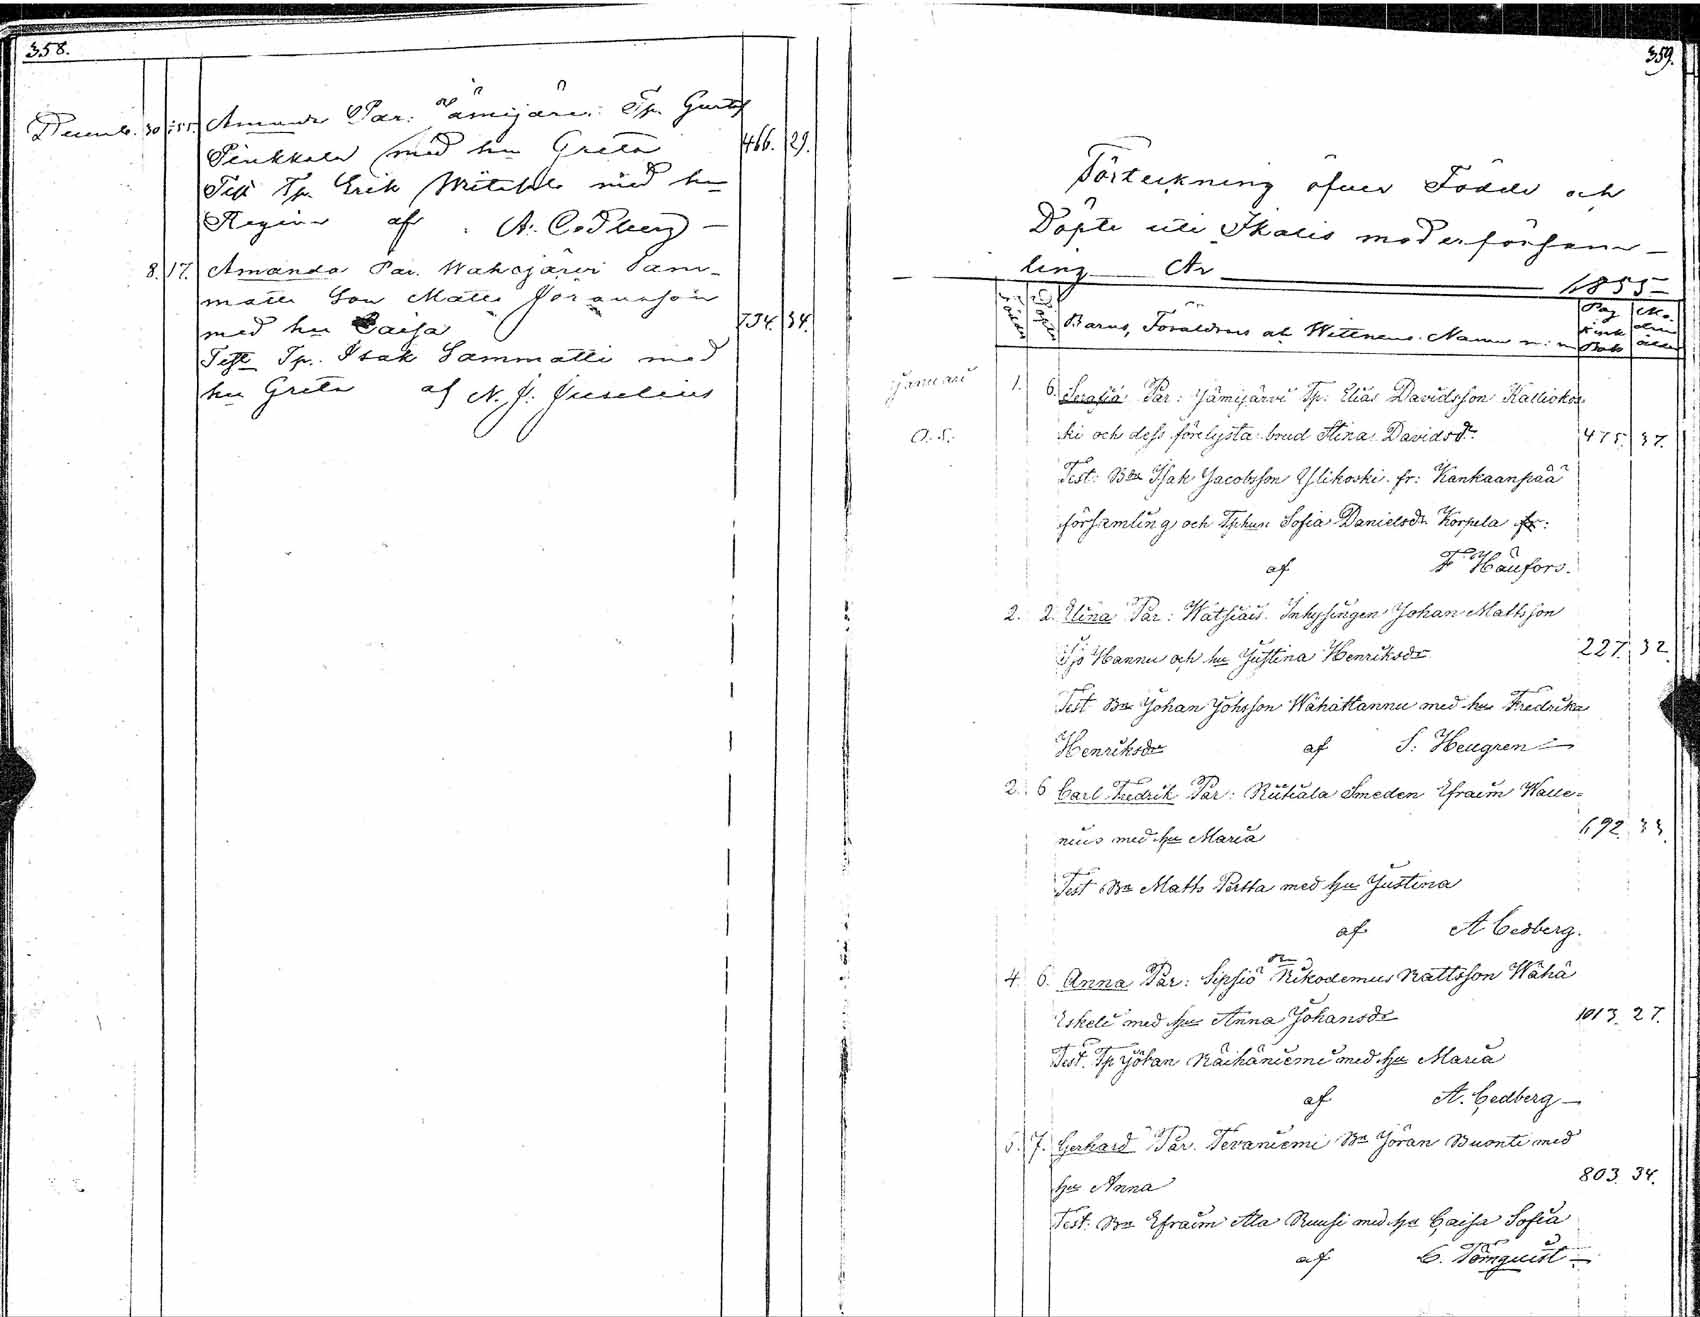 358.
Decemb. 30 Amanda Par: Jämijärvi Tp. Gustaf
Pinkkala med hu Greta 466. 29.
Test Tp. Erik med hu
Regina af A. Cedberg —
8. 17. Amanda Par. Wahojärvi Sam-
matti Son Matts Göransson
med hu Caisa 734. 34.
Test Tp. Isak Sammatti med
hu Greta af N. J. Juselius
359.
Förteckning öfver Födde och
Döpte uti Ikalis moderförsam-
ling År 1855
Födder Döpter Barns, Föräldrars ok Wittnens Namn m: m Pag Kirk Bok Mo- drens ålder
Januari 1. 6. Serafia Par: Jämijärvi Tp: Elias Davidsson Kalliokos
O. S. ki och dess förelysta brud Stina Davidsdr 475. 37.
Test: Bdn Isak Jacobsson Ylikoski fr: Kankaanpää
församling och Tphun Sofia Danielsdr Korpela fr:
af F Häufors.
2. 2. Elina Par: Watsiais Inhysingen Johan Mattsson
Iso Hannu och hu Justina Henriksdr 227. 32.
Test Bn Johan Johsson Wähähannu med hu Fredrika
Henriksdr af S: Heugren —
2. 6 Carl Fredrik Par: Riitiala Smeden Efraim Walle-
nius med hu Maria 692. 33.
Test Bn Matts Pertta med hu Justina
af A Cedberg.
4. 6. Anna Par: Sipsiö Bn Nikodemus Mattsson Wähä
Eskeli med hu Anna Johansdr 1013. 27.
Test. Tp Johan Näihäniemi med hu Maria
af A. Cedberg —
5. 7. Gerhard Par. Tevaniemi Bn Jöran Buonti med
hu Anna 803. 34.
Test: Bn Efraim Ala Ruusi med hu Caisa Sofia
af C. Törnquist —